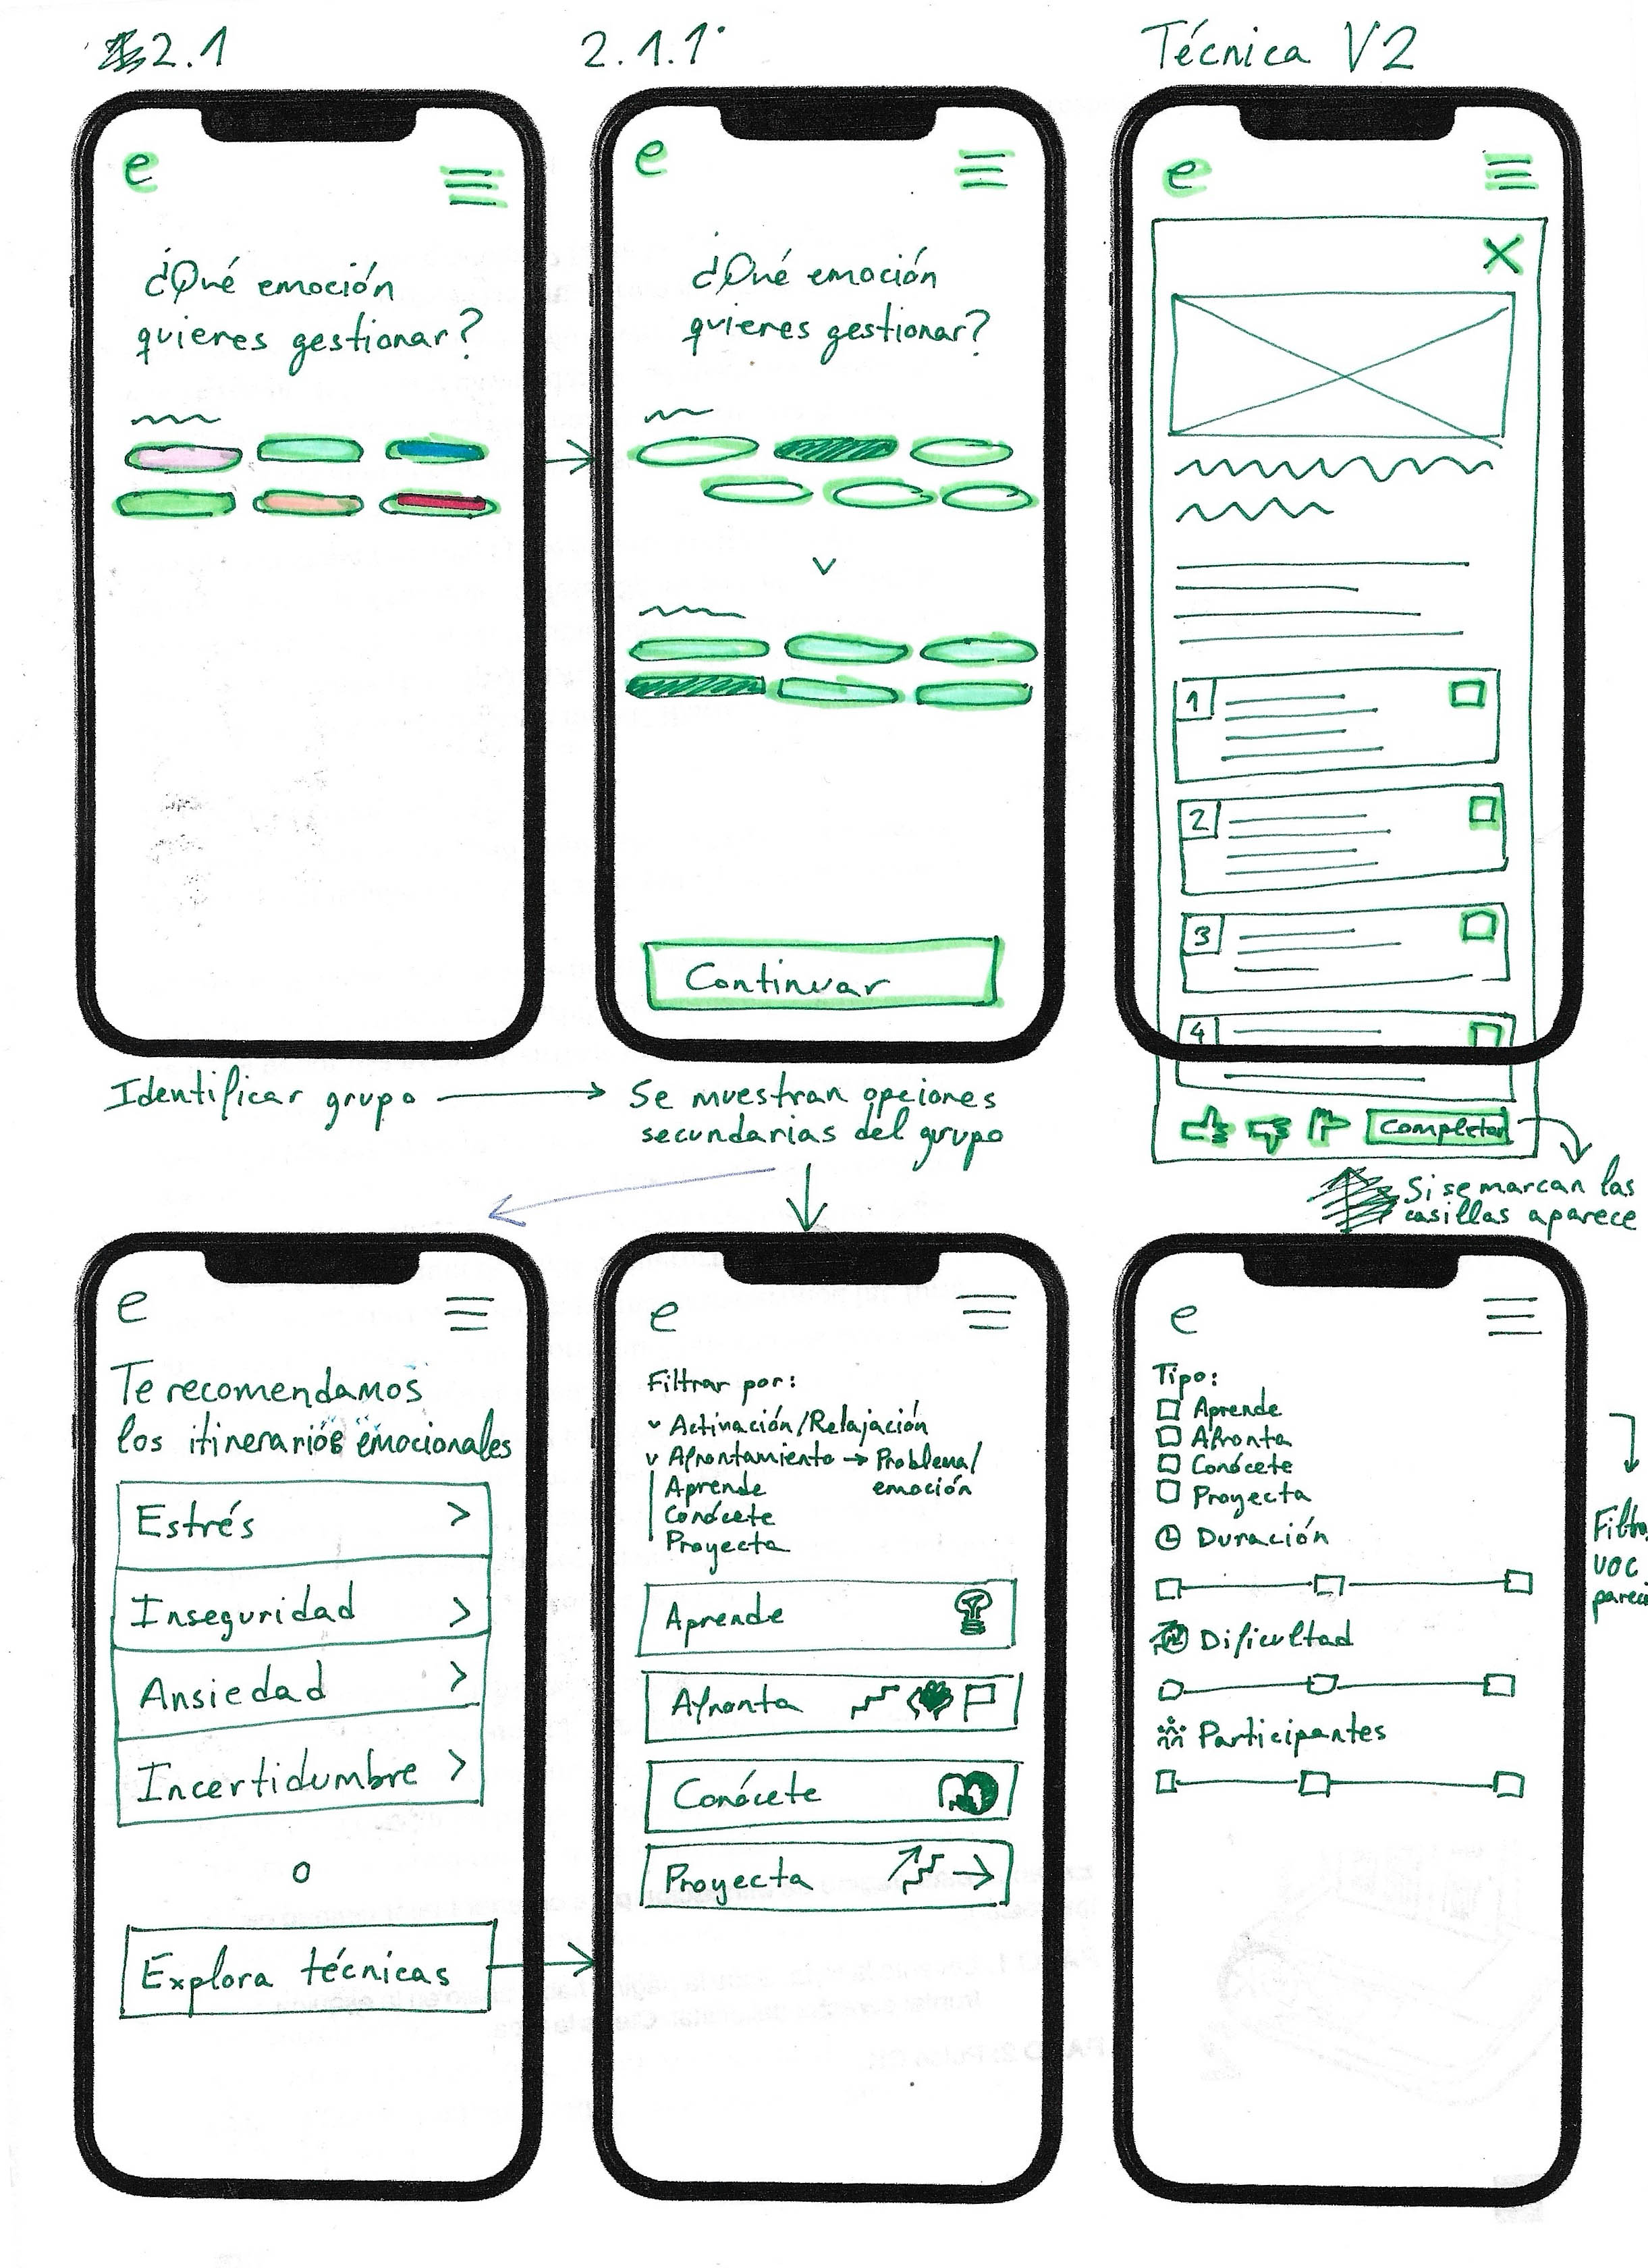 2.1
2.1.1
Técnica V2
e
¿Qué emoción
quieres gestionar?
e
¿Qué emoción
quieres gestionar?
Continuar
e
X
1
2
3
4
Completar
Identificar grupo
Se muestran opciones
secundarias del grupo
Si se marcan las
casillas aparece
e
Te recomendamos
los itinerarios emocionales
Estrés >
Inseguridad >
Ansiedad >
Incertidumbre >
o
Explora técnicas
e
Filtrar por:
Activación/Relajación
Afrontamiento → Problema/
emoción
Aprende
Conócete
Proyecta
Aprende
Afronta
Conócete
Proyecta
e
Tipo:
Aprende
Afronta
Conócete
Proyecta
Duración
Dificultad
Participantes